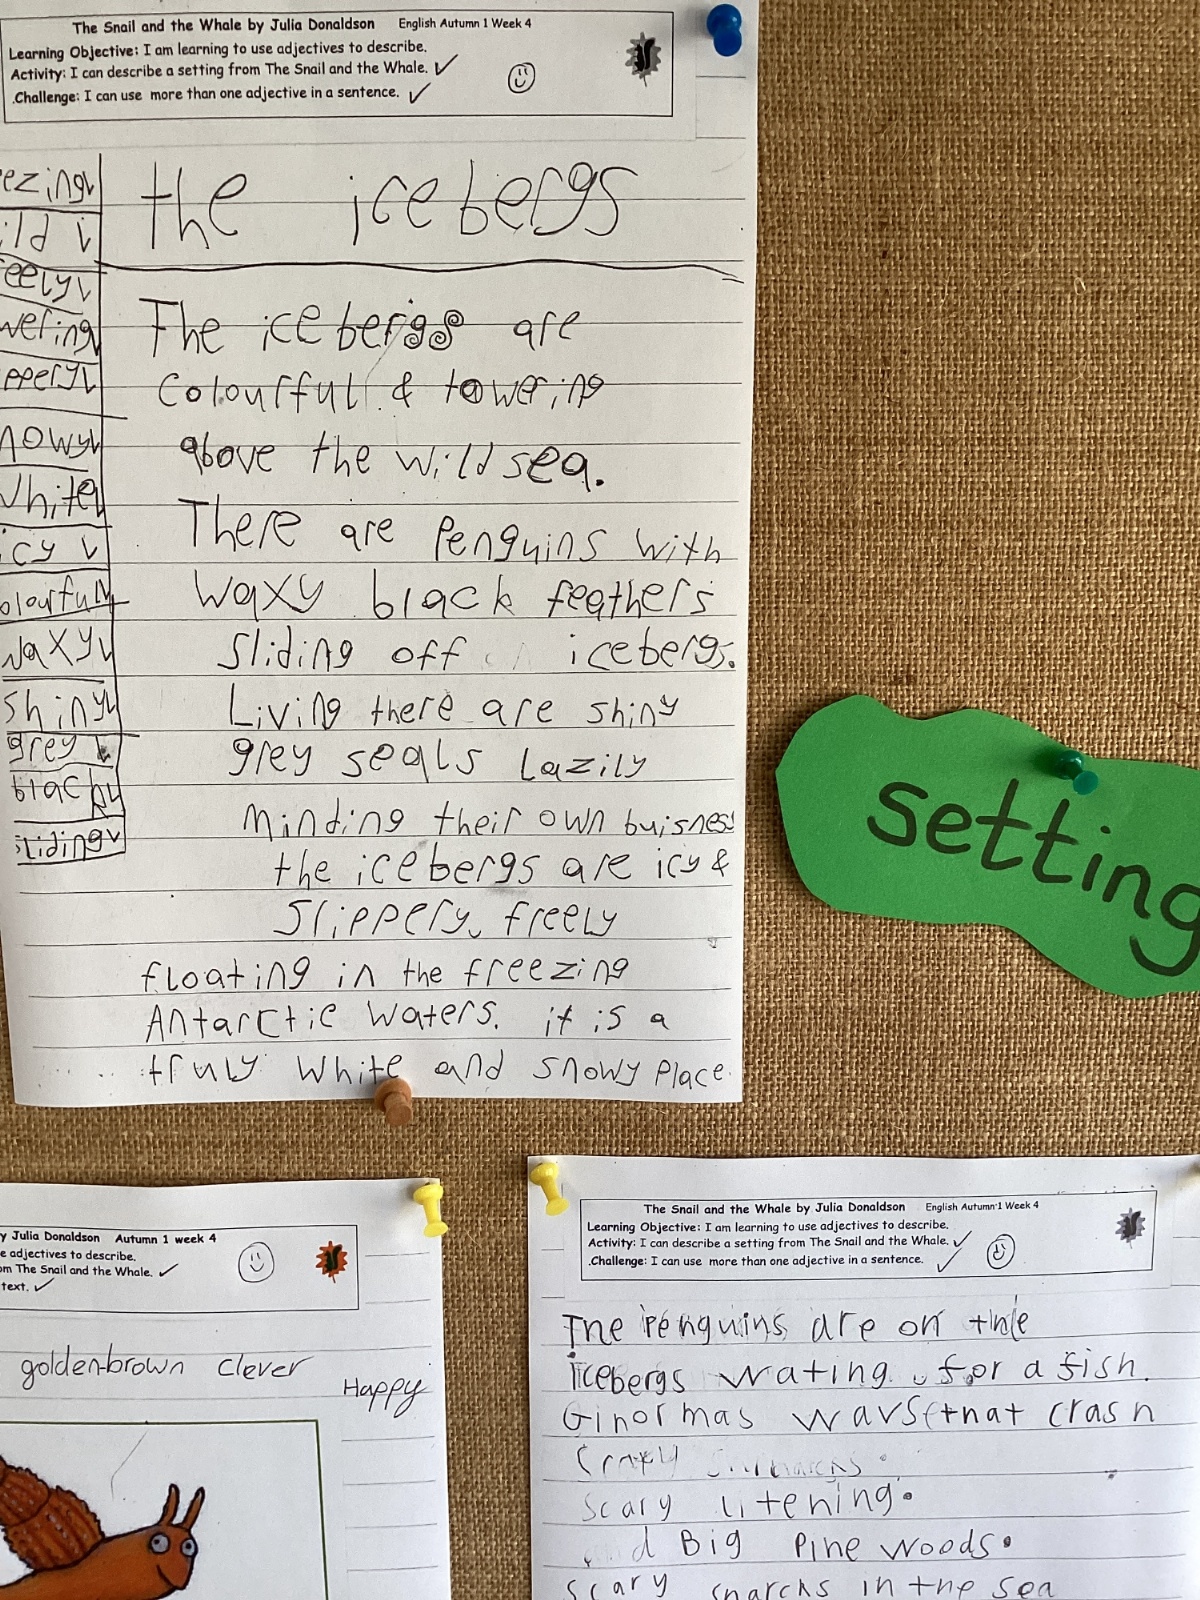 The Snail and the Whale by Julia Donaldson English Autumn 1 Week 4
Learning Objective: I am learning to use adjectives to describe.
Activity: I can describe a setting from The Snail and the Whale. ✓
.Challenge: I can use more than one adjective in a sentence. ✓
ezing
ild
eely
wering
ppery
nowy
white
icy
olourful
waxy
shiny
grey
black
sliding
the icebergs
The icebergs are
colourfful & towering
above the wild sea.
There are Penguins with
waxy black feathers
Sliding off icebergs.
Living there are shiny
grey seals Lazily
Minding their own buisness
the icebergs are icy &
Slippery, freely
floating in the freezing
Antarctic waters. it is a
truly white and snowy Place.
setting
y Julia Donaldson Autumn 1 week 4
e adjectives to describe.
om The Snail and the Whale. ✓
text. ✓
golden-brown clever
Happy
The Snail and the Whale by Julia Donaldson English Autumn 1 Week 4
Learning Objective: I am learning to use adjectives to describe.
Activity: I can describe a setting from The Snail and the Whale. ✓
.Challenge: I can use more than one adjective in a sentence. ✓
The Penguins are on the
icebergs wating for a fish.
Ginormas wavs that crash
Scary litening.
Big Pine woods.
Scary sharcks in the sea